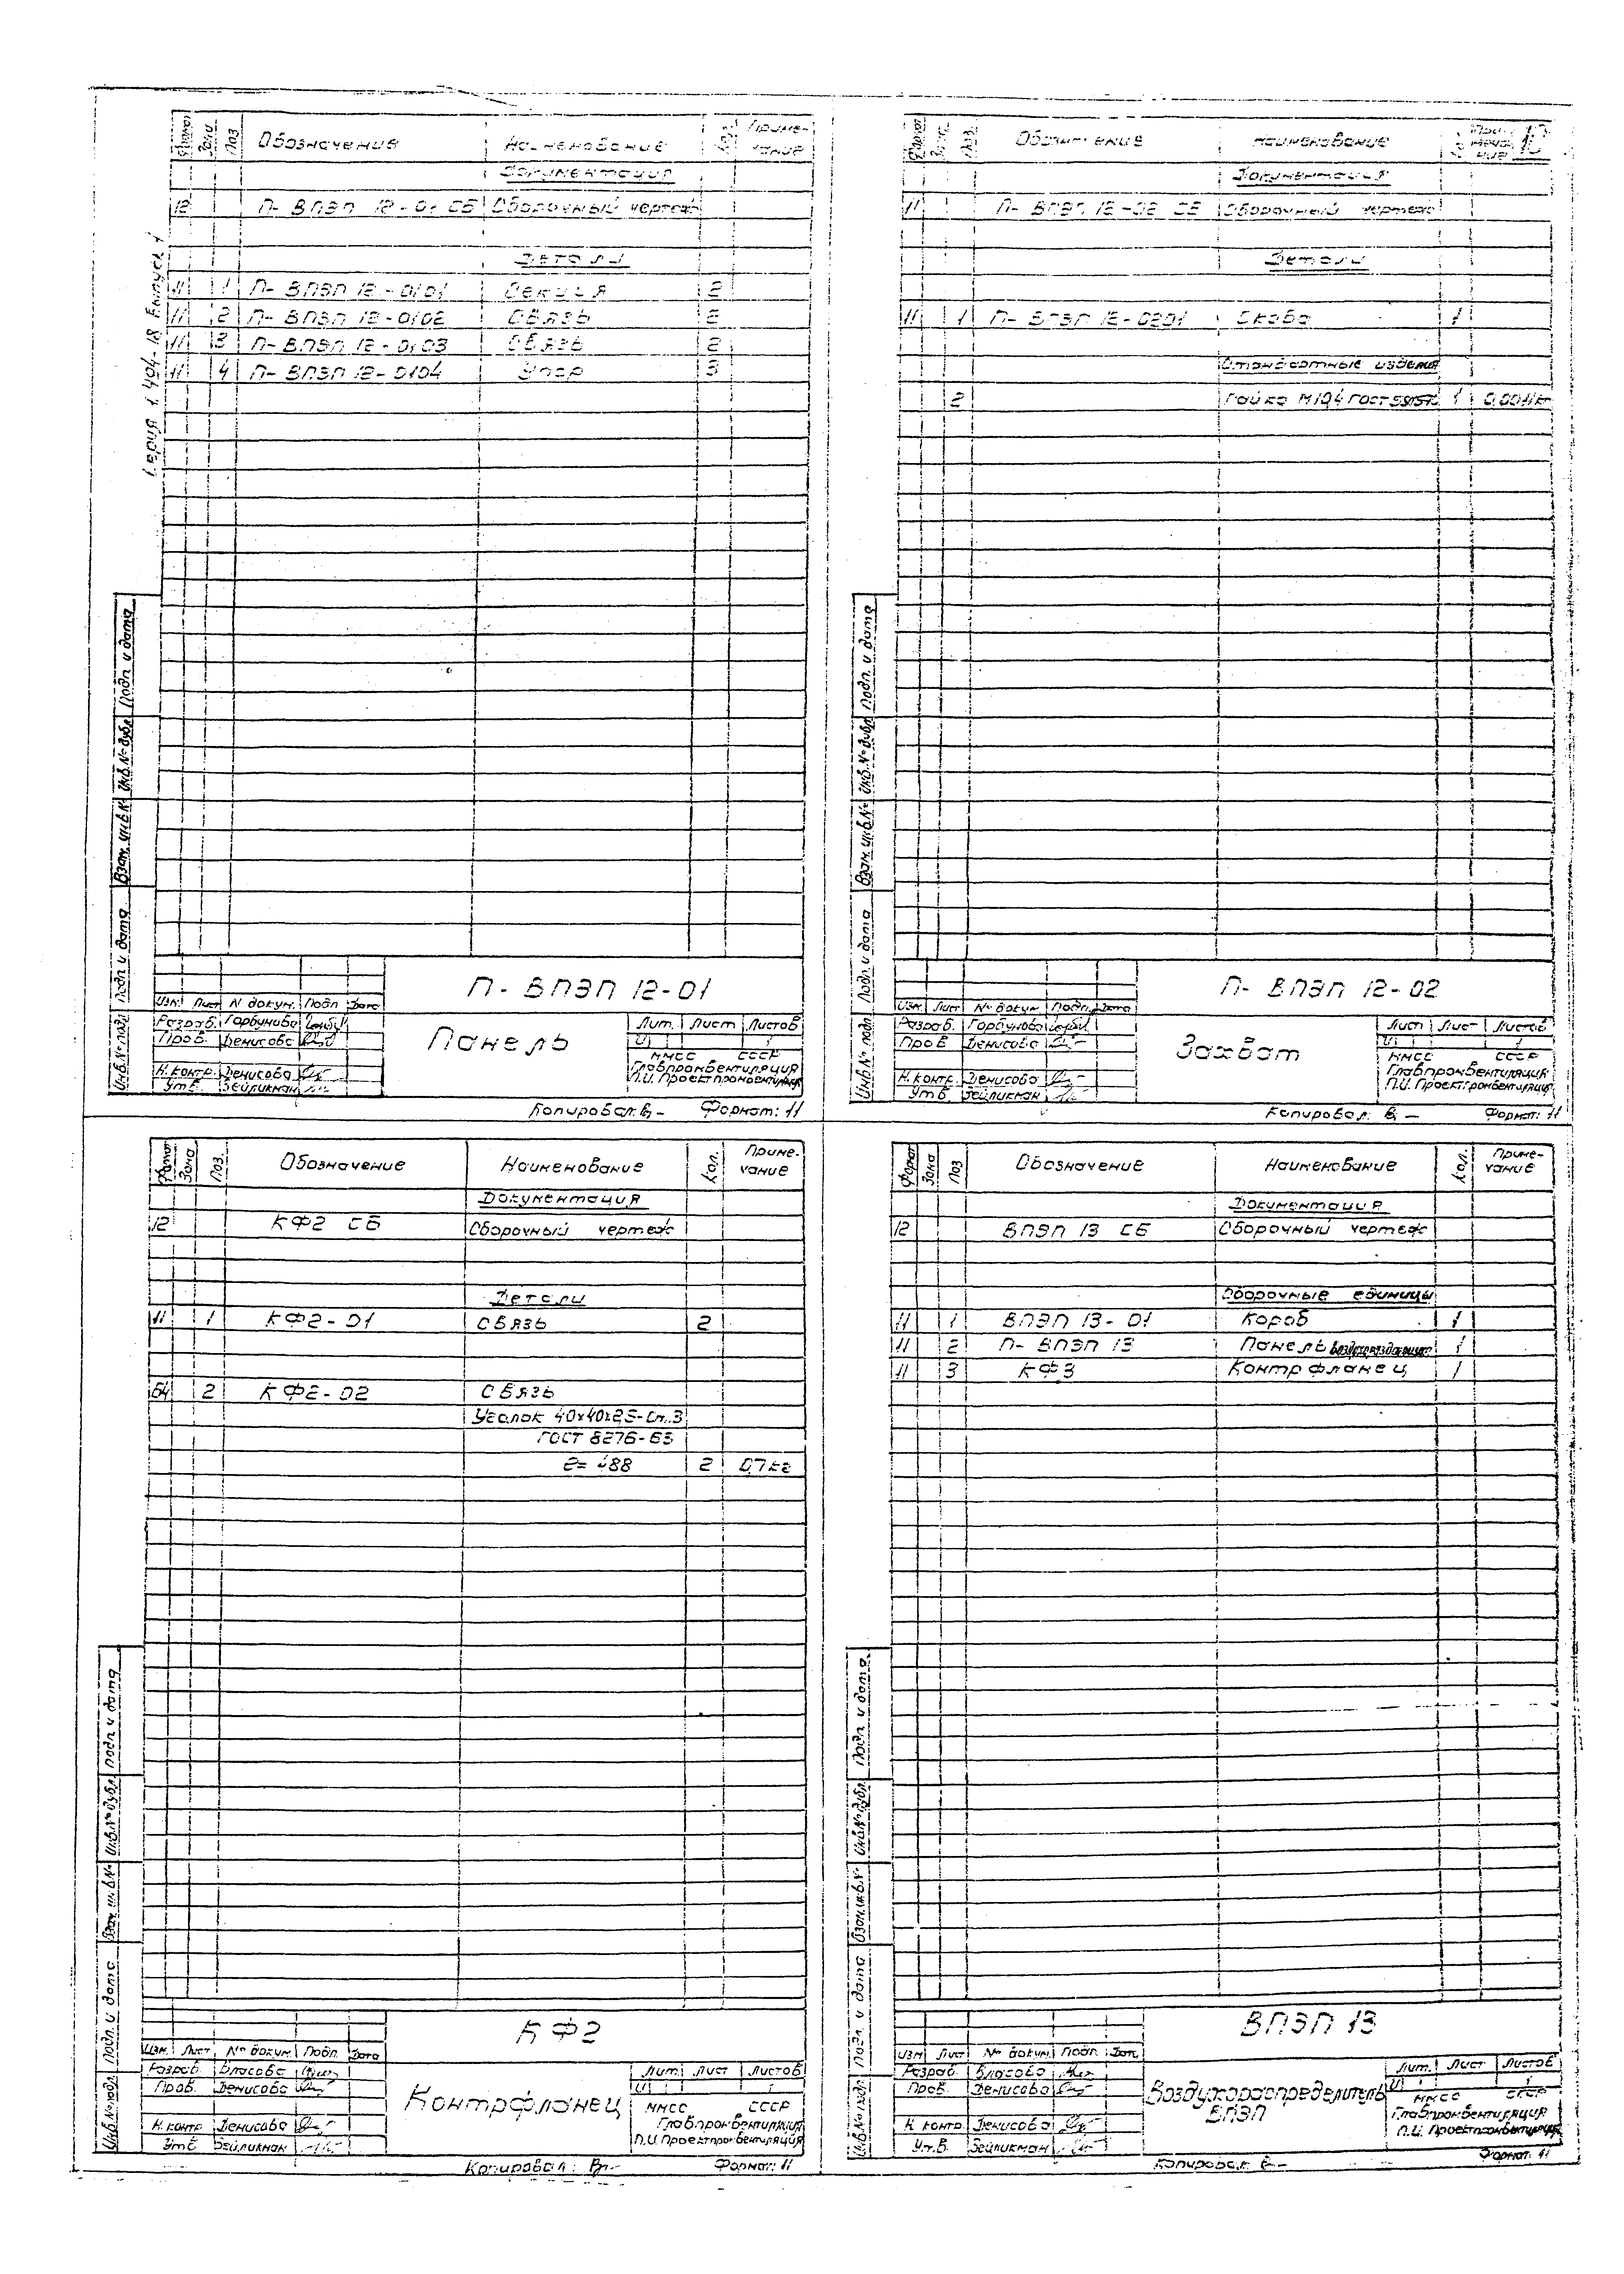 Серия 1.494-18 Выпуск 1
Формат Зона Поз Обозначение Наименование Приме-
чание
Документация
12 П- ВПЭП 12-01 СБ Сборочный чертеж
Детали
11 1 П- ВПЭП 12-0101 Секция 2
11 2 П- ВПЭП 12-0102 Связь 2
11 3 П- ВПЭП 12-0103 Связь 2
11 4 П- ВПЭП 12-0104 Упор 3
Подп. и дата
Инв.№ дубл.
Взам. инв.№
Подп. и дата
Инв.№ подл.
П- ВПЭП 12-01
Изм. Лист № докум. Подп. Дата
Разраб. Горбунова
Пров. Денисова
Н. контр. Денисова
Утв. Зейликман
Панель
Лит. Лист Листов
И 1
ММСС СССР
Главпромвентиляция
П.И. Проектпромвентиляция
Копировал: Формат: 11
Формат Поз. Обозначение Наименование Приме-
чание 10
Документация
11 П- ВПЭП 12-02 СБ Сборочный чертеж
Детали
11 1 П- ВПЭП 12-0201 Скоба 1
Стандартные изделия
2 Гайка М10,4 ГОСТ 1
Подп. и дата
Инв.№ дубл.
Взам. инв.№
Подп. и дата
Инв.№ подл.
П- ВПЭП 12-02
Изм. Лист № докум. Подп. Дата
Разраб. Горбунова
Пров Денисова
Н. контр. Денисова
Утв. Зейликман
Захват
Лист Лист Листов
И 1
ММСС СССР
Главпромвентиляция
П.И. Проектпромвентиляция
Копировал: Формат: 11
Формат Зона Поз. Обозначение Наименование Кол. Приме-
чание
Документация
12 КФ2 СБ Сборочный чертеж
Детали
11 1 КФ2-01 Связь 2
БЧ 2 КФ2-02 Связь
Уголок 40х40х2,5-Ст.3
ГОСТ 8276-63
2 0,7кг
Подп. и дата
Инв.№ дубл.
Взам. инв.№
Подп. и дата
Инв.№ подл.
КФ2
Изм. Лист № докум. Подп. Дата
Разраб. Власова
Пров. Денисова
Н. контр. Денисова
Утв. Зейликман
Контрфланец
Лит. Лист Листов
И 1
ММСС СССР
Главпромвентиляция
П.И. Проектпромвентиляция
Копировал: Формат: 11
Формат Зона Поз Обозначение Наименование Кол. Приме-
чание
Документация
12 ВПЭП 13 СБ Сборочный чертеж
Сборочные единицы
11 1 ВПЭП 13-01 Короб 1
11 2 П- ВПЭП 13 Панель 1
11 3 КФ3 Контрфланец 1
Подп. и дата
Инв.№ дубл.
Взам. инв.№
Подп. и дата
Инв.№ подл.
ВПЭП 13
Изм Лист № докум. Подп. Дата
Разраб. Власова
Пров. Денисова
Н. контр. Денисова
Утв. Зейликман
Воздухораспределитель
ВПЭП
Лит. Лист Листов
И 1
ММСС СССР
Главпромвентиляция
П.И. Проектпромвентиляция
Копировал: Формат: 11